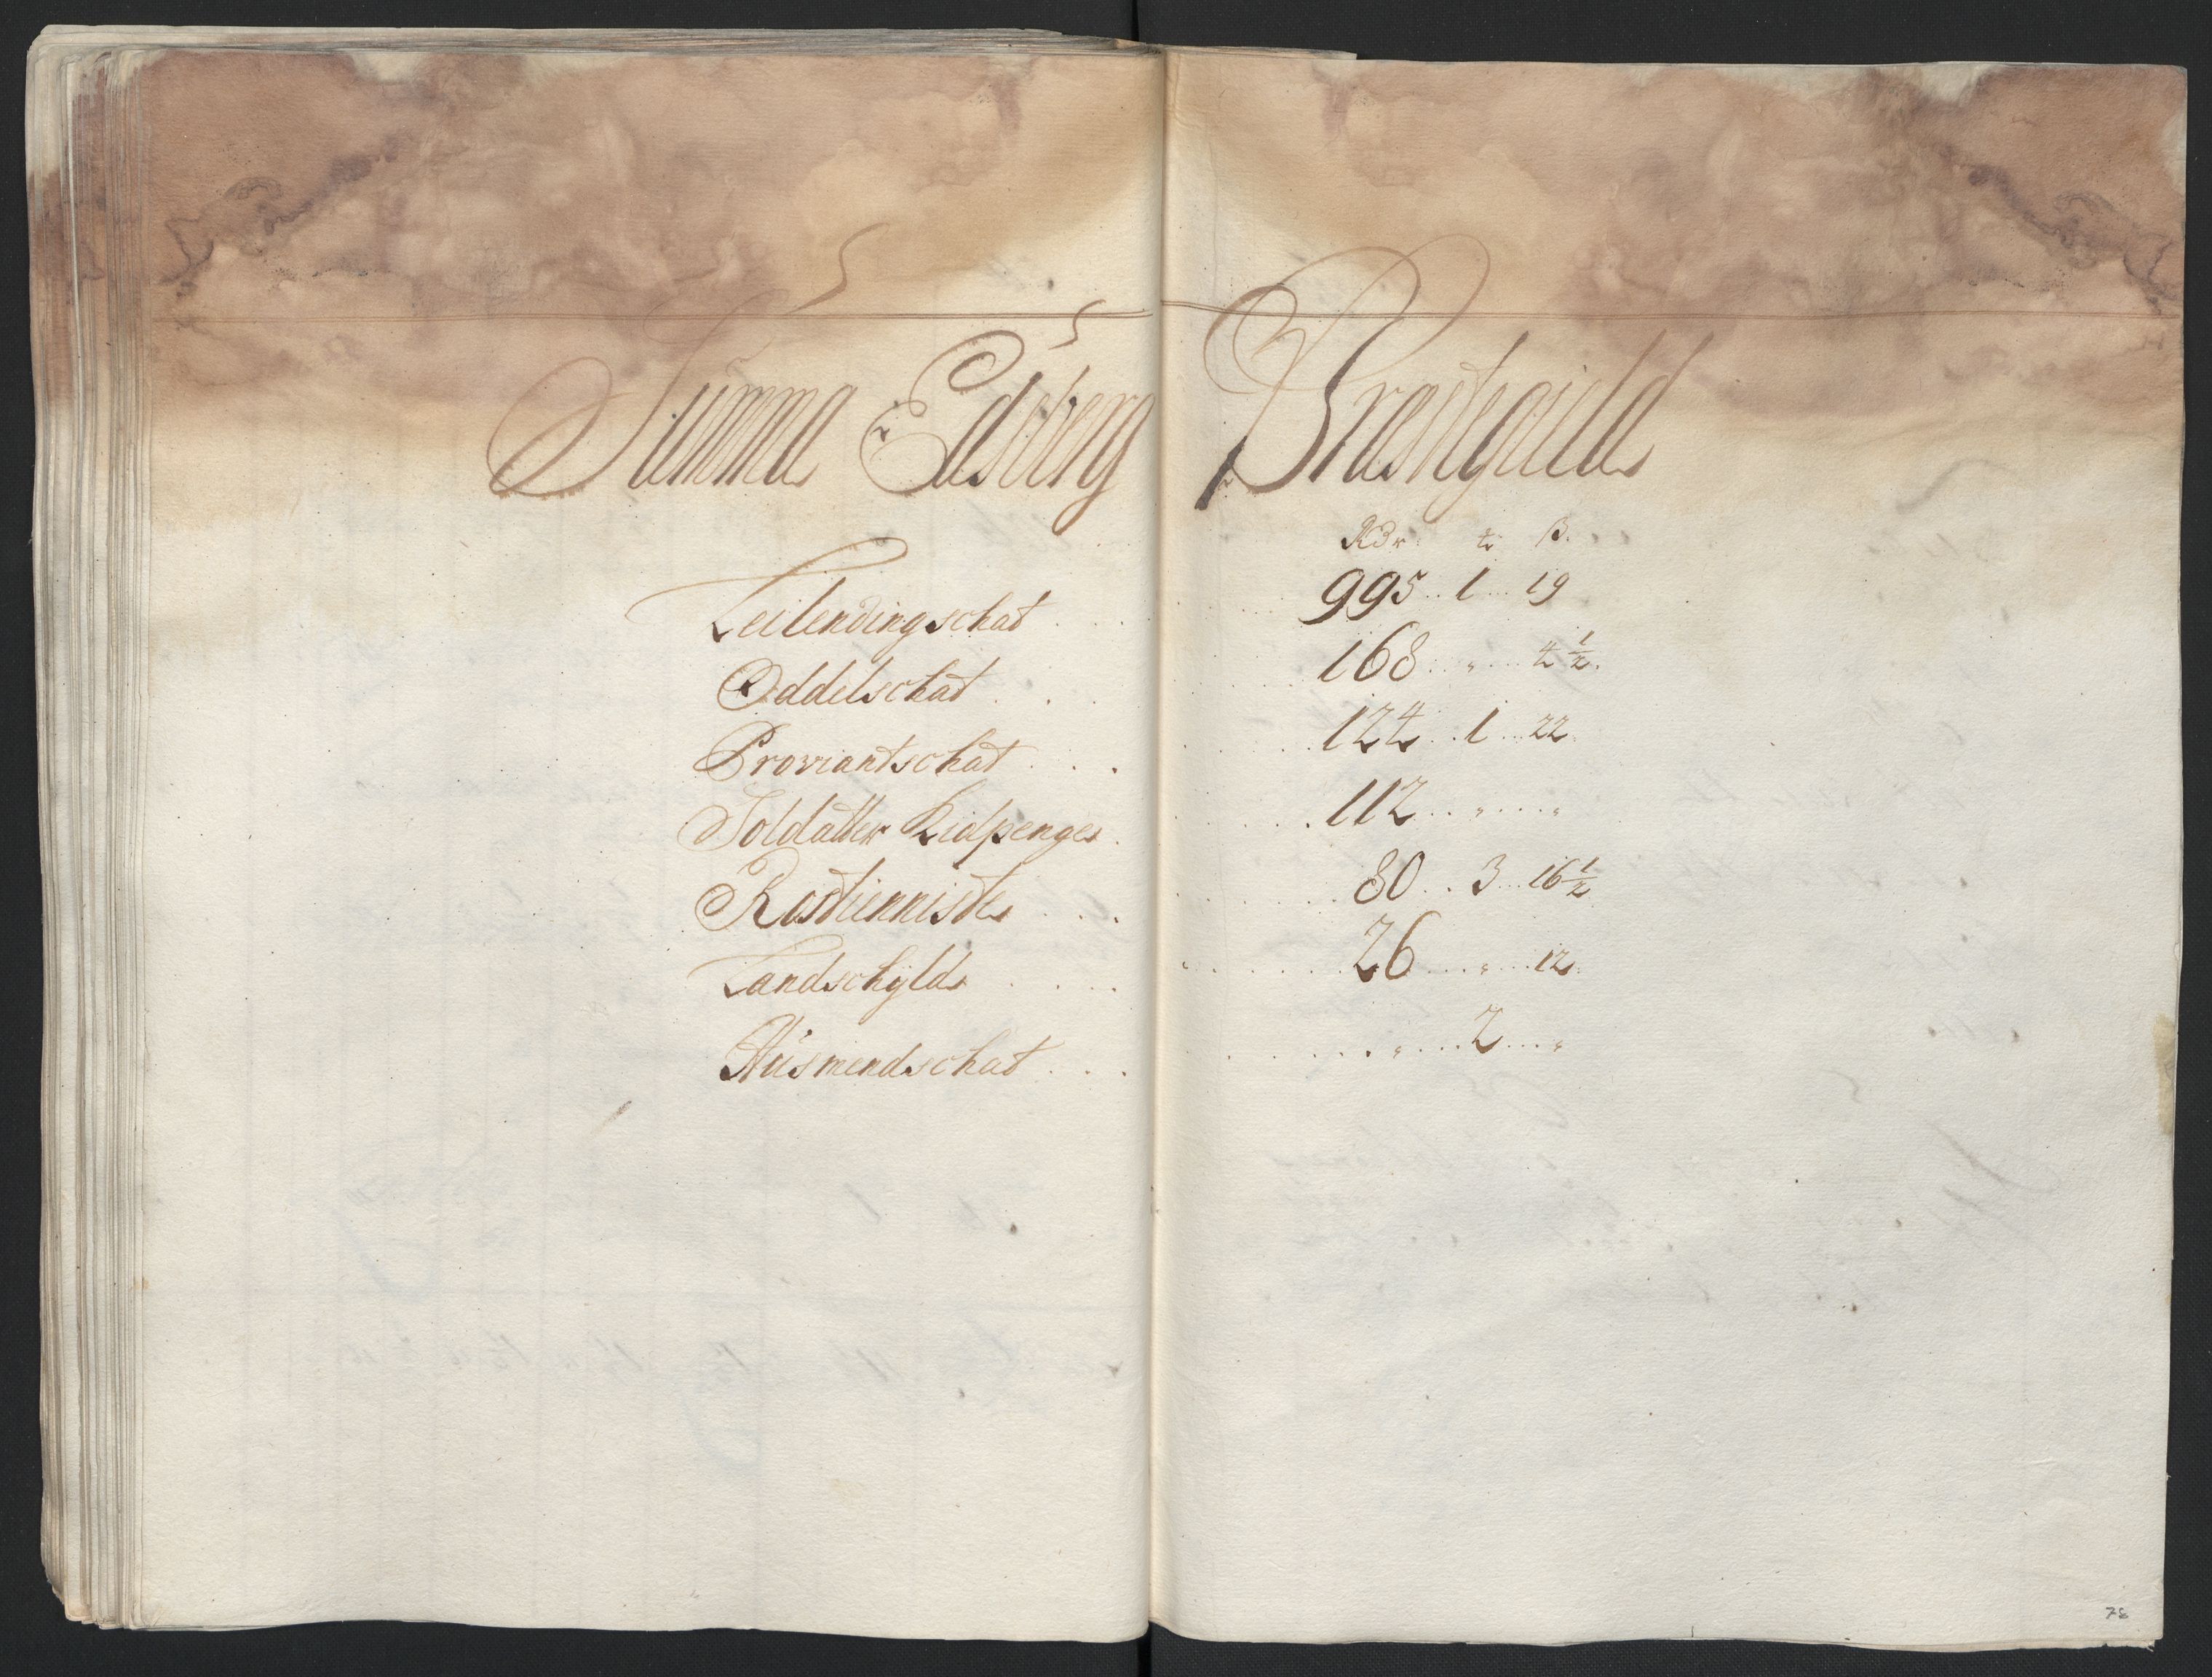 Summa Edsberg Prestegield
Rdr. # ß.
Leilendingschat . . . 995 .. 1 ... 19
Oddelschat . . . 168 ... " .... 4 1/2.
Proviantschat . . . 124 .. 1 ... 22
Soldatter Kidpenge . 112 ... " .... "
Rostienniste . . . 80 .. 3 ... 16 1/2
Landschyld . . . 26 .... " ... 12.
Husmendschat . . . " .... 2 ... "
78